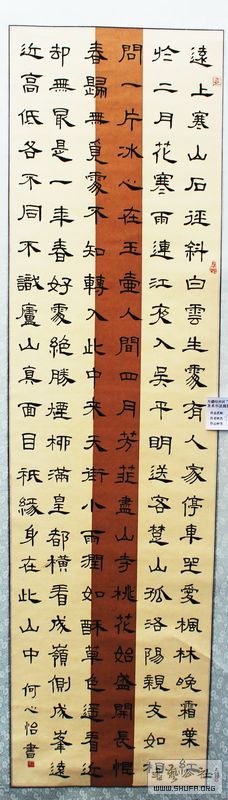 遠上寒山石徑斜白雲生處有人家停車坐愛楓林晚霜葉紅
於二月花寒雨連江夜入吳平明送客楚山孤洛陽親友如相
問一片冰心在玉壺人間四月芳菲盡山寺桃花始盛開長恨
春歸無覓處不知轉入此中來天街小雨潤如酥草色遙看近
却無最是一年春好處絕勝煙柳滿皇都橫看成嶺側成峯遠
近高低各不同不識廬山真面目祇緣身在此山中 何心怡書
WWW.SHUFA.ORG